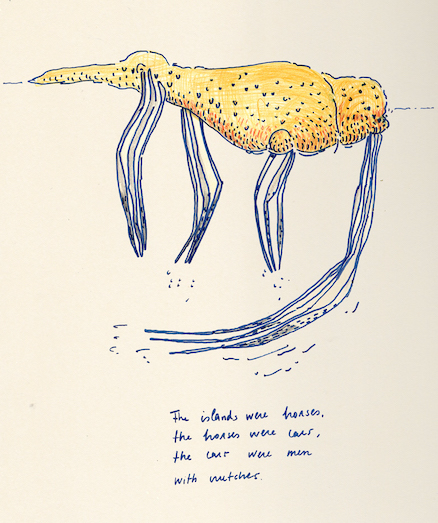 The islands were horses,
the horses were cars,
the cars were men
with crutches.